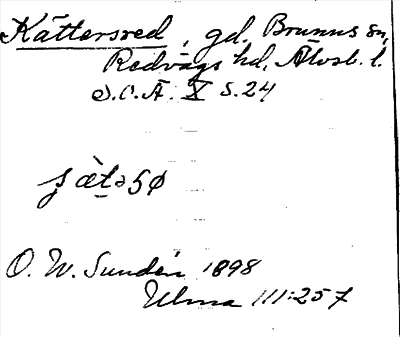 Kättersred, gd. Brunns sn,
Redvägs hd, Älvsb. l.
S.O.Ä. X s. 24
O. W. Sundén 1898
Ulma 111:257